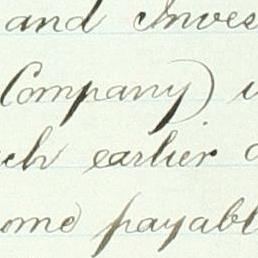 and Inves
Company)
ch earlier
ome payabl